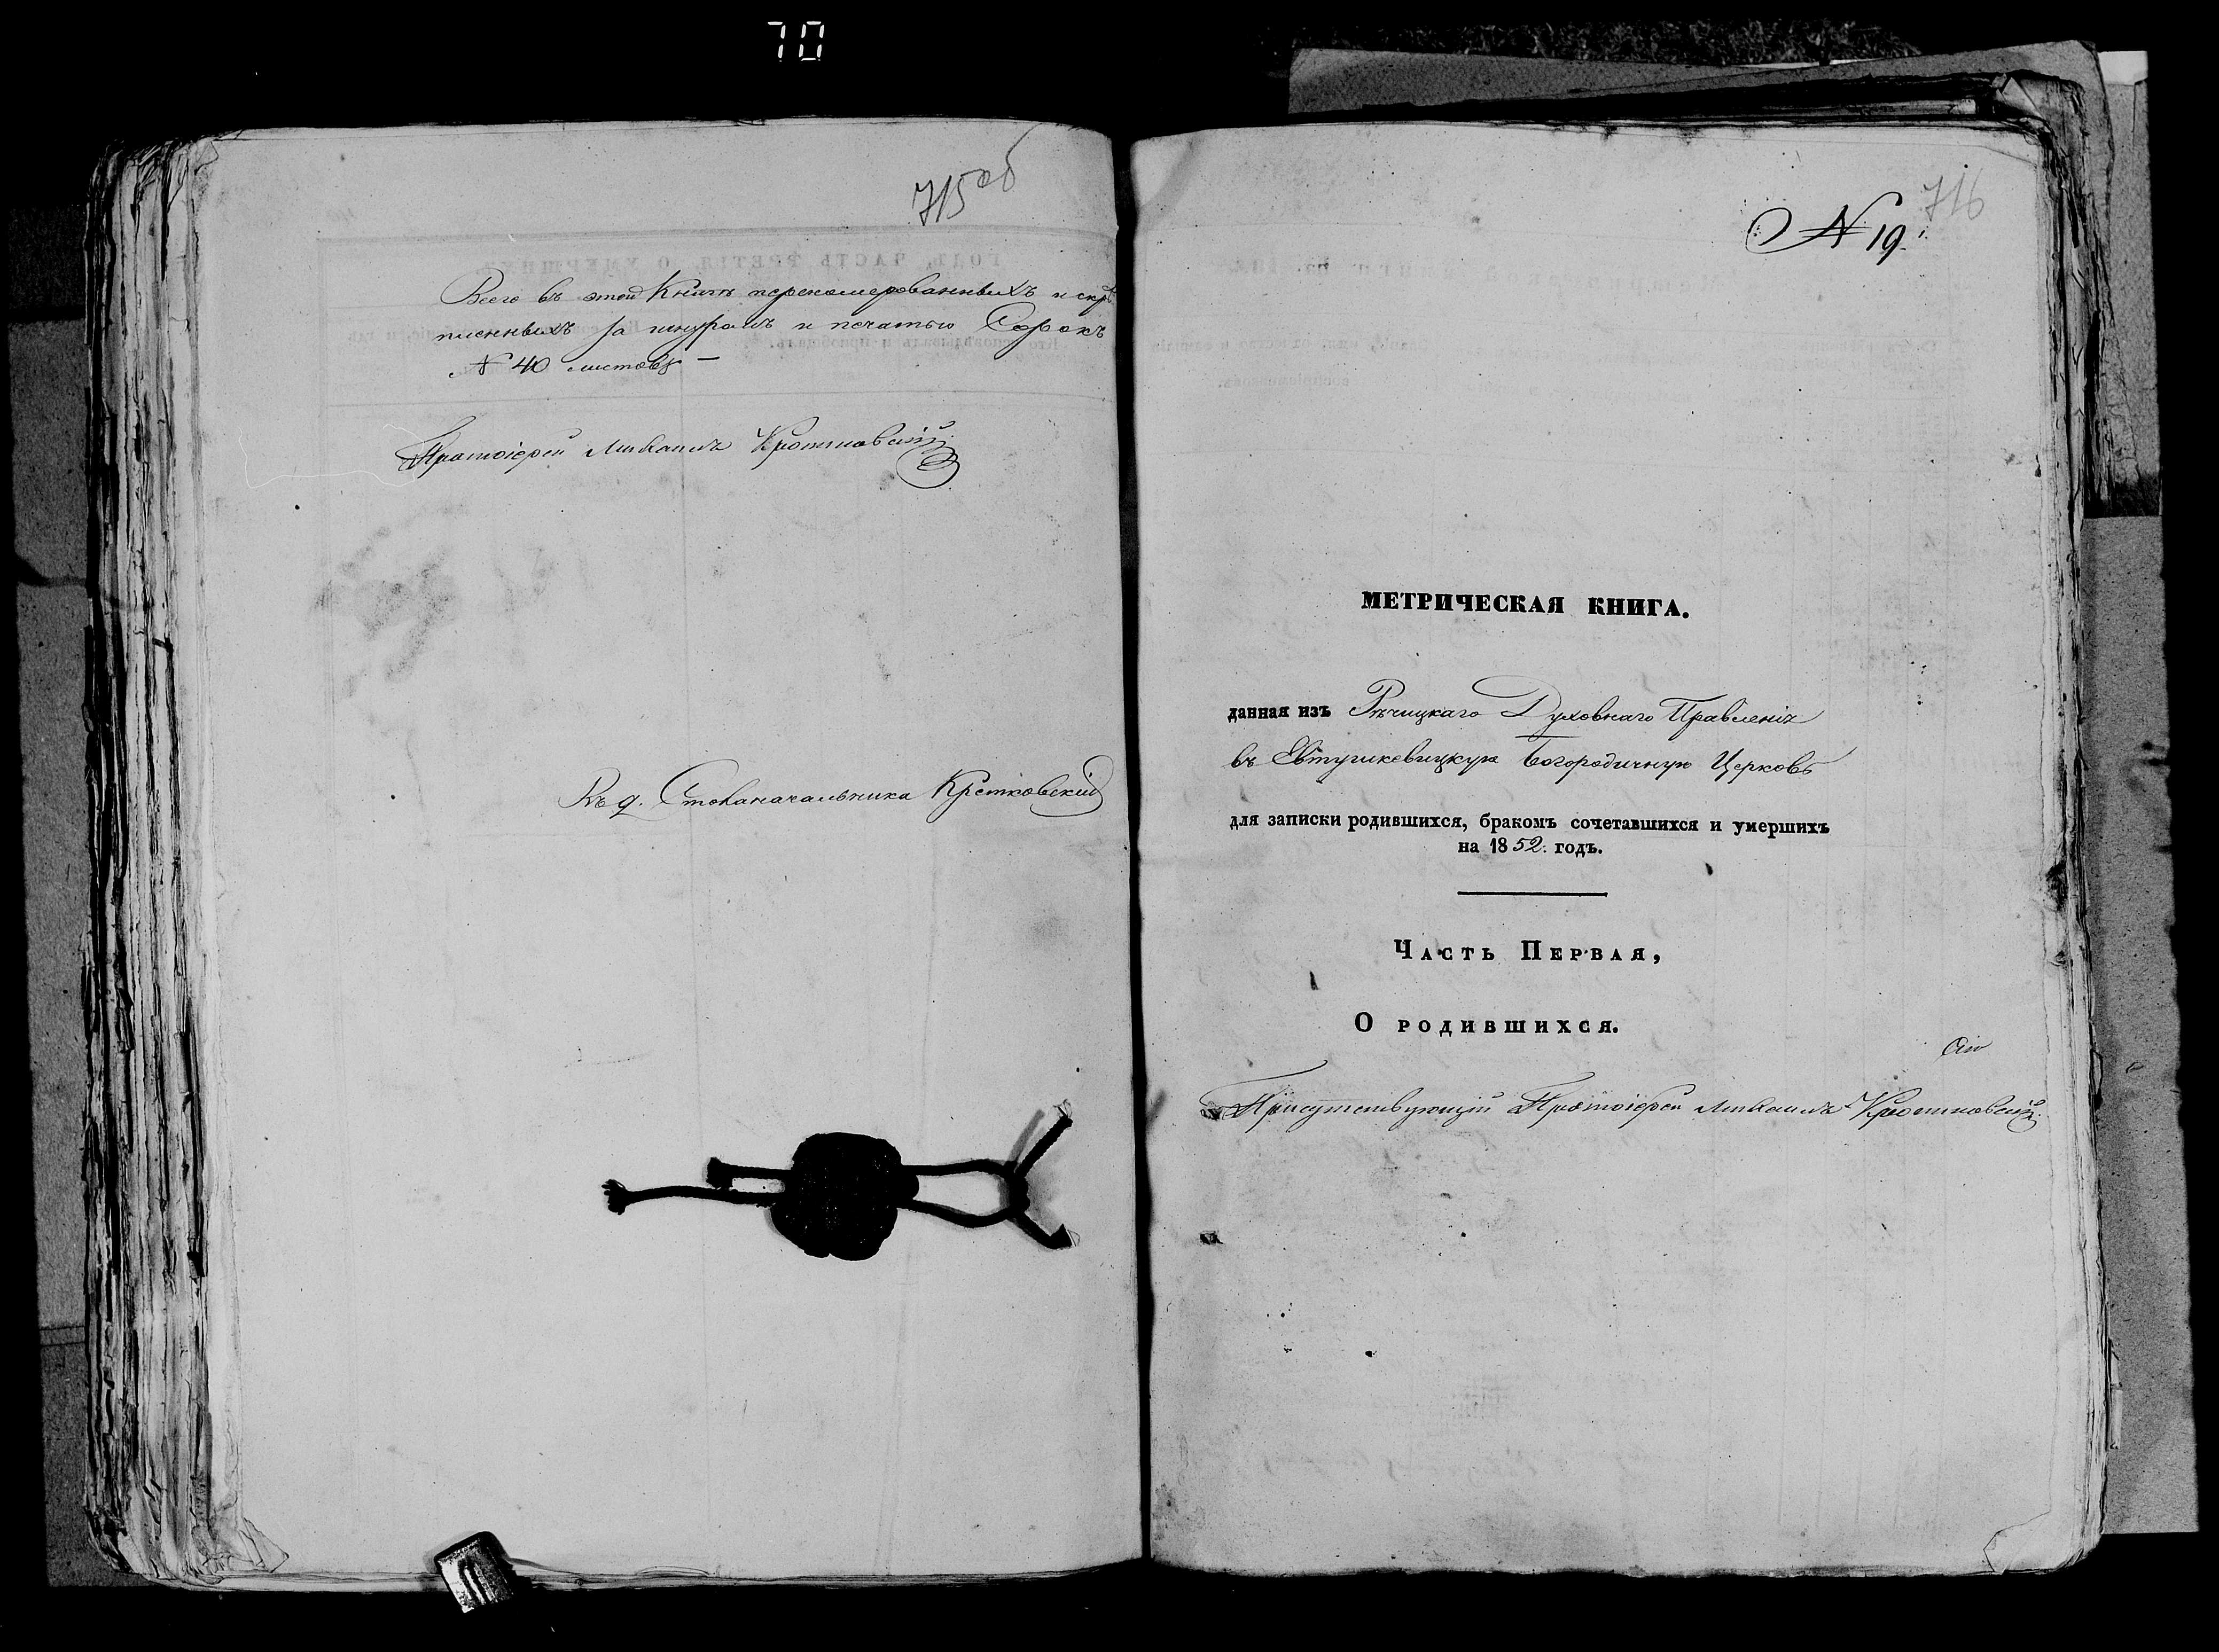 70
715 об
Всего въ этой Книгѣ перенумерованныхъ и скрѣ
пленныхъ за шнуромъ и печатью Сорокъ
№ 40 листовъ —
Протоіерей Михаилъ
Столоначальника
716
№ 19.
МЕТРИЧЕСКАЯ КНИГА.
данная изъ Рѣчицкаго Духовнаго Правленія
въ Евтушкевицкую Богородичную Церковь
для записки родившихся, бракомъ сочетавшихся и умершихъ
на 1852. годъ.
Часть Первая,
О родившихся.
Присутствующій Протоіерей Михаилъ